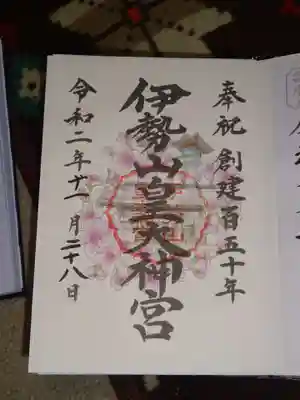 奉祝 創建百五十年
伊勢山皇大神宮
令和二年十一月二十八日